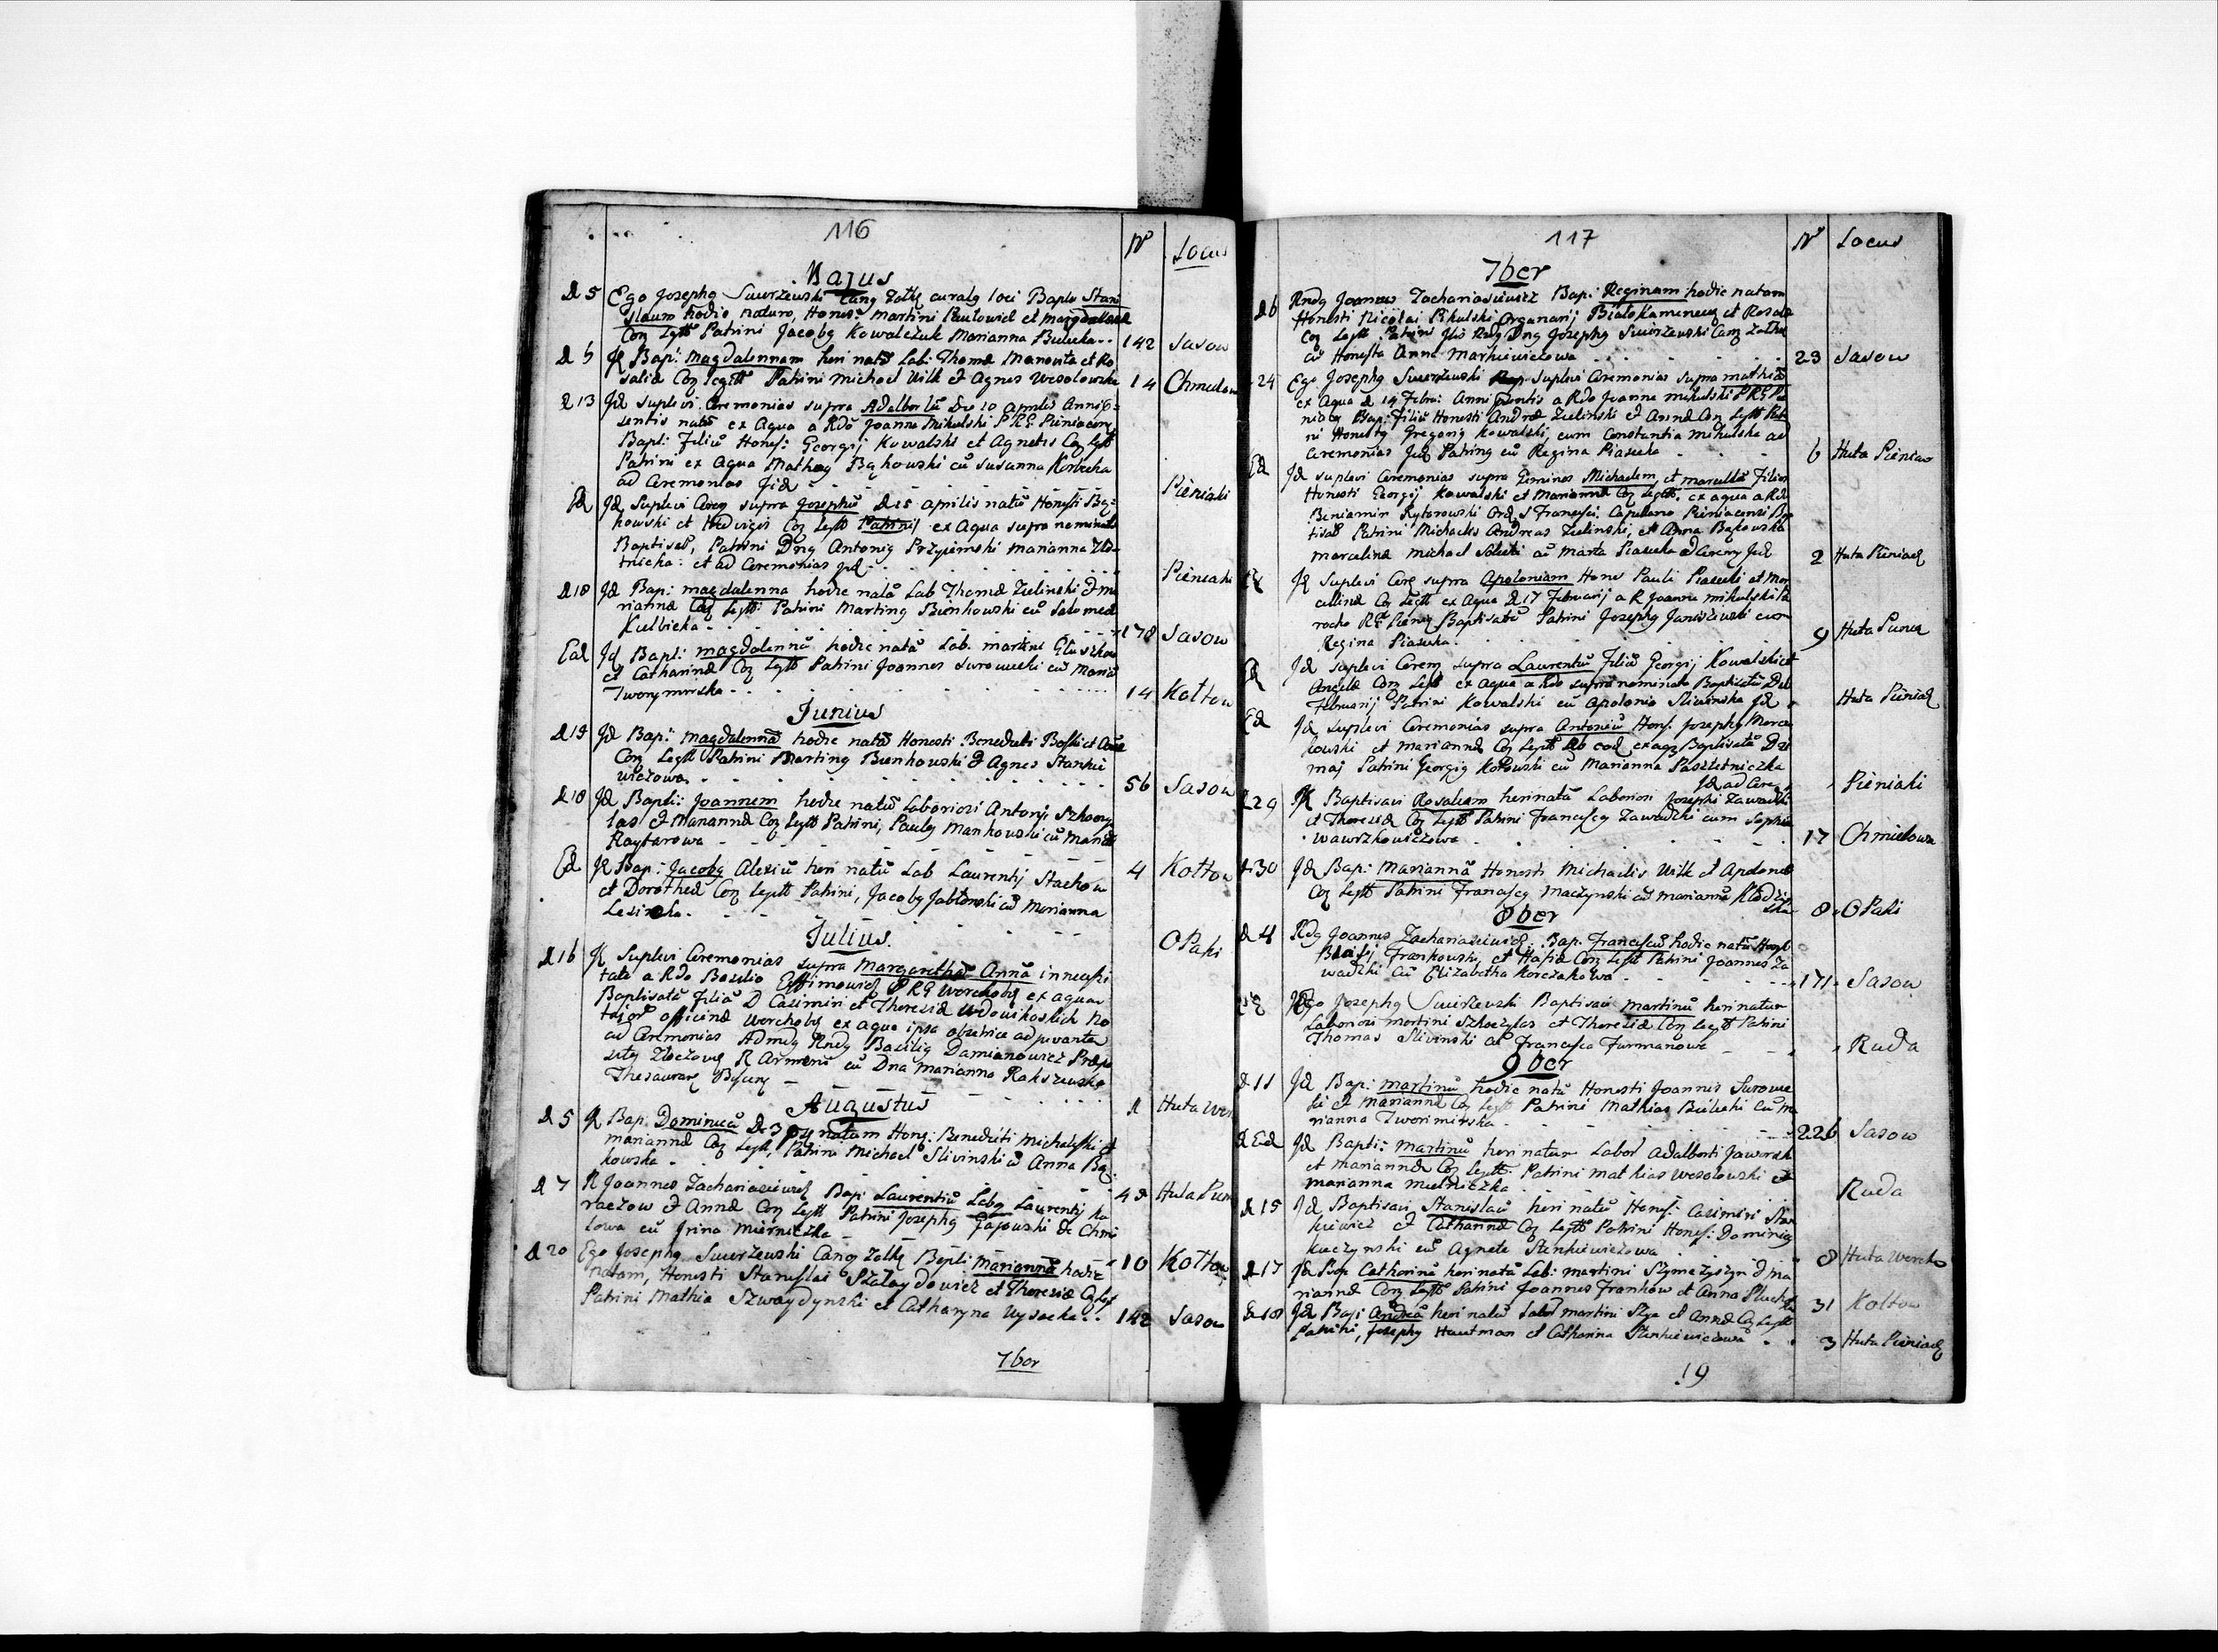 116
No Locus
Majus
d 5 Ego Josephg Swirzewski Cang Zolk curatg loci Baplu Stani
slaum hodie naturo, Hones: Martini Pawlowicz et Magdalena
Con Legtt Patrini Jacobg Kowalczuk Marianna Bielecka . . 142 Sasow
d Jd Bap: Magdalennam heri nata Lab: Thoma Manowita et Ro
salia Con legtt Patrini Michael Wilk et Agnes Wesolowska 14 Chmielow
d 13 Jd suplevi Ceremonias supra Adalbertu die 10 Aprilis Anni
sentis nato ex Aqua a Rdo Joanne Mikulski P R G Pieniacen
Bapt: Filiu Hones: Georgij Kowalski et Agnetis Con Legtt
Patrini ex Aqua Matheg Bąkowski cu Susanna
ad Ceremonias Jid Pieniaki
Ed Jd Suplevi Cerem supra Josephu d 15 Aprilis natu Honesti Bą
kowski et Hedvigis Con Legtt Patrini ex Aqua supra nominato
Baptisat, Patrini Dng Antonig Przyiemski Marianna
tnicka: et ad Ceremonias jid Pieniaki
d 18 Jd Bap: Magdalenna hodie nata Lab Thoma Zielinski et Ma
rianna Con Legtt: Patrini Marting Bienkowski cu Salomea
Kulbicka 178 Sasow
Ead Jd Bapt: Magdalennu hodie nata Lab. Martini Gluszkow
et Catharina Con Legtt Patrini Joannes Surowiecki cu Maria
Tworymirska 14 Koltow
Junius
d 15 Jd Bap: Magdalenna hodie nata Honesti Benedicti Boski et Anna
Con Legtt Patrini Marting Bienkowski et Agnes Stankie
wiczowa 56 Sasow
d 18 Jd Bapti: Joannem hodie natu Laboriosi Antonj Szkoczy
las et Marianna Con Legtt Patrini, Paulg Mankowski cu Maria
Raytarowa
Ed Jd Bap: Jacobg Alexiu heri natu Lab Laurentij Stachow 4 Koltow
et Dorothea Con Legtt Patrini, Jacobg Jablonski cu Marianna
Lesinska OPaki
Julius.
d 16 Jd Suplevi Ceremonias supra Margaretha Anna in necessi
tate a Rdo Basilio Effimowicz P R G Werchobg ex aqua
Baptisata Filia D Casimiri et Theresia Wdowikoskich No
tajor officina Werchobg ex aqua ipsa obstetrice adjuvante
ad Ceremonias Admdg Rndg Basilig Damianowicz Præpo
sitg Zloczowg R Armenu cu Dna Marianna Rakszewska
Thesaurar Bjsury d Huta Wer
Augustus
d 5 Jd Bap: Dominicu d 3 natam Hong: Benedicti Michalski et
Marianna Con Legtt, Patrini Michael Slivinski et Anna Bą
kowska 45 Huta Pien
d 7 R Joannes Zachariasiewicz Bap: Laurentiu Labg Laurentij Ka
raczow et Anna Con Legtt Patrini Josephg Gajowski de Chmi
lowa cu Irina Miernicka 10 Koltow
d 20 Ego Josephg Swirzewski Cang Zolk Bapti Marianna hodie
natam, Honesti Stanislai Szalaydowicz et Theresia Con Leg
Patrini Mathia Szwaydynski et Catharyna Wysocka . . 142 Sasow
7ber
117
No Locus
7ber
d 6 Rndg Joannes Zachariasiewicz Bap: Reginam hodie natam
Honesti Nicolai Pikulski Organarij Bialokamenecz et Rosalia
Con Legtt Patrini Jlis Rdg Dng Josephg Swirzewski Cang Zolke
cu Honesta Anna Markiewiczowa 23 Sasow
24 Ego Josephg Swirzewski Bap Suplevi Ceremonias supra Mathia
ex Aqua d 14 Febru: Anni Currentis a Rdo Joanne Mikulski P R G Pie
niacg Bap: Filiu Honesti Andrea Zielinski et Anna Con Legtt Pat
ni Honestg Gregorig Kowalski, cum Constantia Mikulska ad
Ceremonias Jid Patring cu Regina Piasecka 6 Huta Pieniac
Ed Jd suplevi Ceremonias supra Geminos Michaelem et Marcella Filios
Honesti Georgij Kowalski et Marianna Con Legtt, ex aqua a Rdo
Beniamin Rytorowski Ord S Francisci Capellano Pieniacensi Bap
tisat Patrini Michaelis Andreas Zielinski, et Anna Bąkowska
Marcelina Michael Solecki cu Marta Piasecka ad Cerem Jid 2 Huta Pieniacz
Jd Suplevi Cere supra Apoloniam Hone Pauli Piasecki et Mar
cellina Con Legtt ex Aqua d 17 Februarij a R Joanne Mikulski Pa
rocho R G Pieng Baptisatu Patrini Josephg Janiszewski cum
Regina Piasecka 9 Huta Pienia
Ed Jd suplevi Cerem supra Laurentiu Filiu Georgij Kowalski et
Angela Con Legtt ex Aqua a Rdo supra nominato Baptisatu D
Februarij Patrini Kowalski cu Apolonia Slivinska Jd Huta Pieniacz
Ed Jd Suplevi Ceremonias supra Antoniu Hones. Josephg Marce
kowski et Marianna Con Legtt ab eod ex aqz Baptisatu D
maj Patrini Georgig Kotowski cu Marianna Pasztetniczka
Jd ad Cere Pieniaki
d 29 Jd Baptisavi Rosaliam heri nata Laboriosi Josephi Zawadski
et Theresia Con Legtt Patrini Franciscg Zawadzki cum Sophia
Wawrzkowiczowa 17 Chmielowa
d 30 Jd Bap: Marianna Honesti Michaelis Wilk et Apolonia
Con Legtt Patrini Franciscg Maczynski cu Marianna Klodzin
ska 8 OPaki
8ber
d 4 Rdg Joannes Zachariasiewicz. Bap. Franciscu hodie natu Honest
Blasij Frankowski et Hasia Con Legtt Patrini Joannes Za
wadzki cu Elizabetha Korczakowa 171 Sasow
Ego Josephg Swirzewski Baptisavi Martinu heri natum
Laboriosi Martini Szkoczylas et Theresia Con Legtt Patrini
Thomas Slivinski cu Francisca Furmanowa Ruda
9ber
d 11 Jd Bap: Martinu hodie natu Honesti Joannis Surowie
cki et Marianna Con Legtt Patrini Mathias Bielecki cu Ma
rianna Tworimirska 226 Sasow
d Ed Jd Bapti: Martinu heri natum Labor Adalberti Jaworsk
et Marianna Con Legtt. Patrini Mathias Wesolowski et
Marianna Mielniczka Ruda
d 15 Jd Baptisavi Stanislau heri natu Hones: Casimiri Stan
kiewicz et Catharina Con Legtt Patrini Hones: Dominig
Kuczynski cu Agneta Stenkiewiczowa 8 Huta Wercho
d 17 Jd Bap Catharina heri nata Lab: Martini Szymczyszyn et Ma
rianna Con Legtt Patrini Joannes Frankow et Anna Pluchst
ka 31 Koltow
d 18 Jd Bap: Andrea heri natu Labor Martini Szga et Anna Con Legtt
Patrini, Josephg Hautman et Catharina Stenkiewiczowa 3 Huta Pieniacz
19